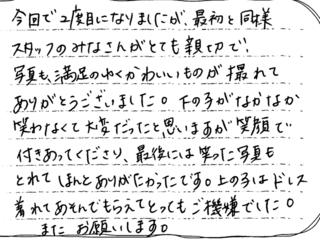 今回で2度目になりましたが、最初と同様
スタッフのみなさんがとても親切で、
写真も、満足のいくかわいいものが撮れて
ありがとうございました。下の子がなかなか
笑わなくて大変だったと思いますが笑顔で
付きあってくださり、最後には笑った写真も
とれてほんとありがたかったです。上の子はドレス
着れてあそんでもらえてとってもご機嫌でした。
またお願いします。